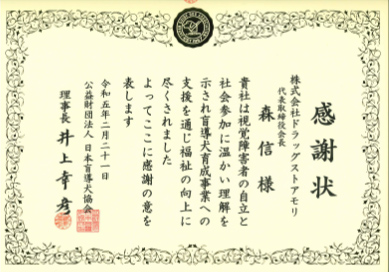 感謝状
株式会社ドラッグストアモリ
代表取締役会長
森 信 様
貴社は視覚障害者の自立と
社会参加に温かい理解を
示され盲導犬育成事業への
支援を通じ福祉の向上に
尽くされました
よってここに感謝の意を
表します
令和五年二月二十一日
公益財団法人 日本盲導犬協会
理事長 井上幸彦